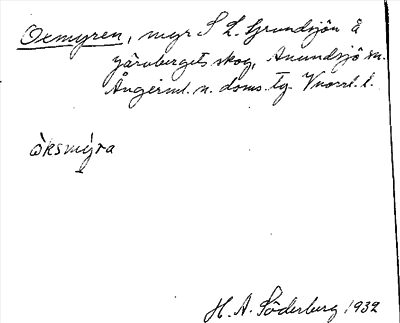 Oxmyren, myr S L. Grundsjön å
Järvbergets skog, Anundsjö sn.
Ångerml. n. doms. tg. Vnorrl. l.
òksmýra
H. A. Söderberg 1932